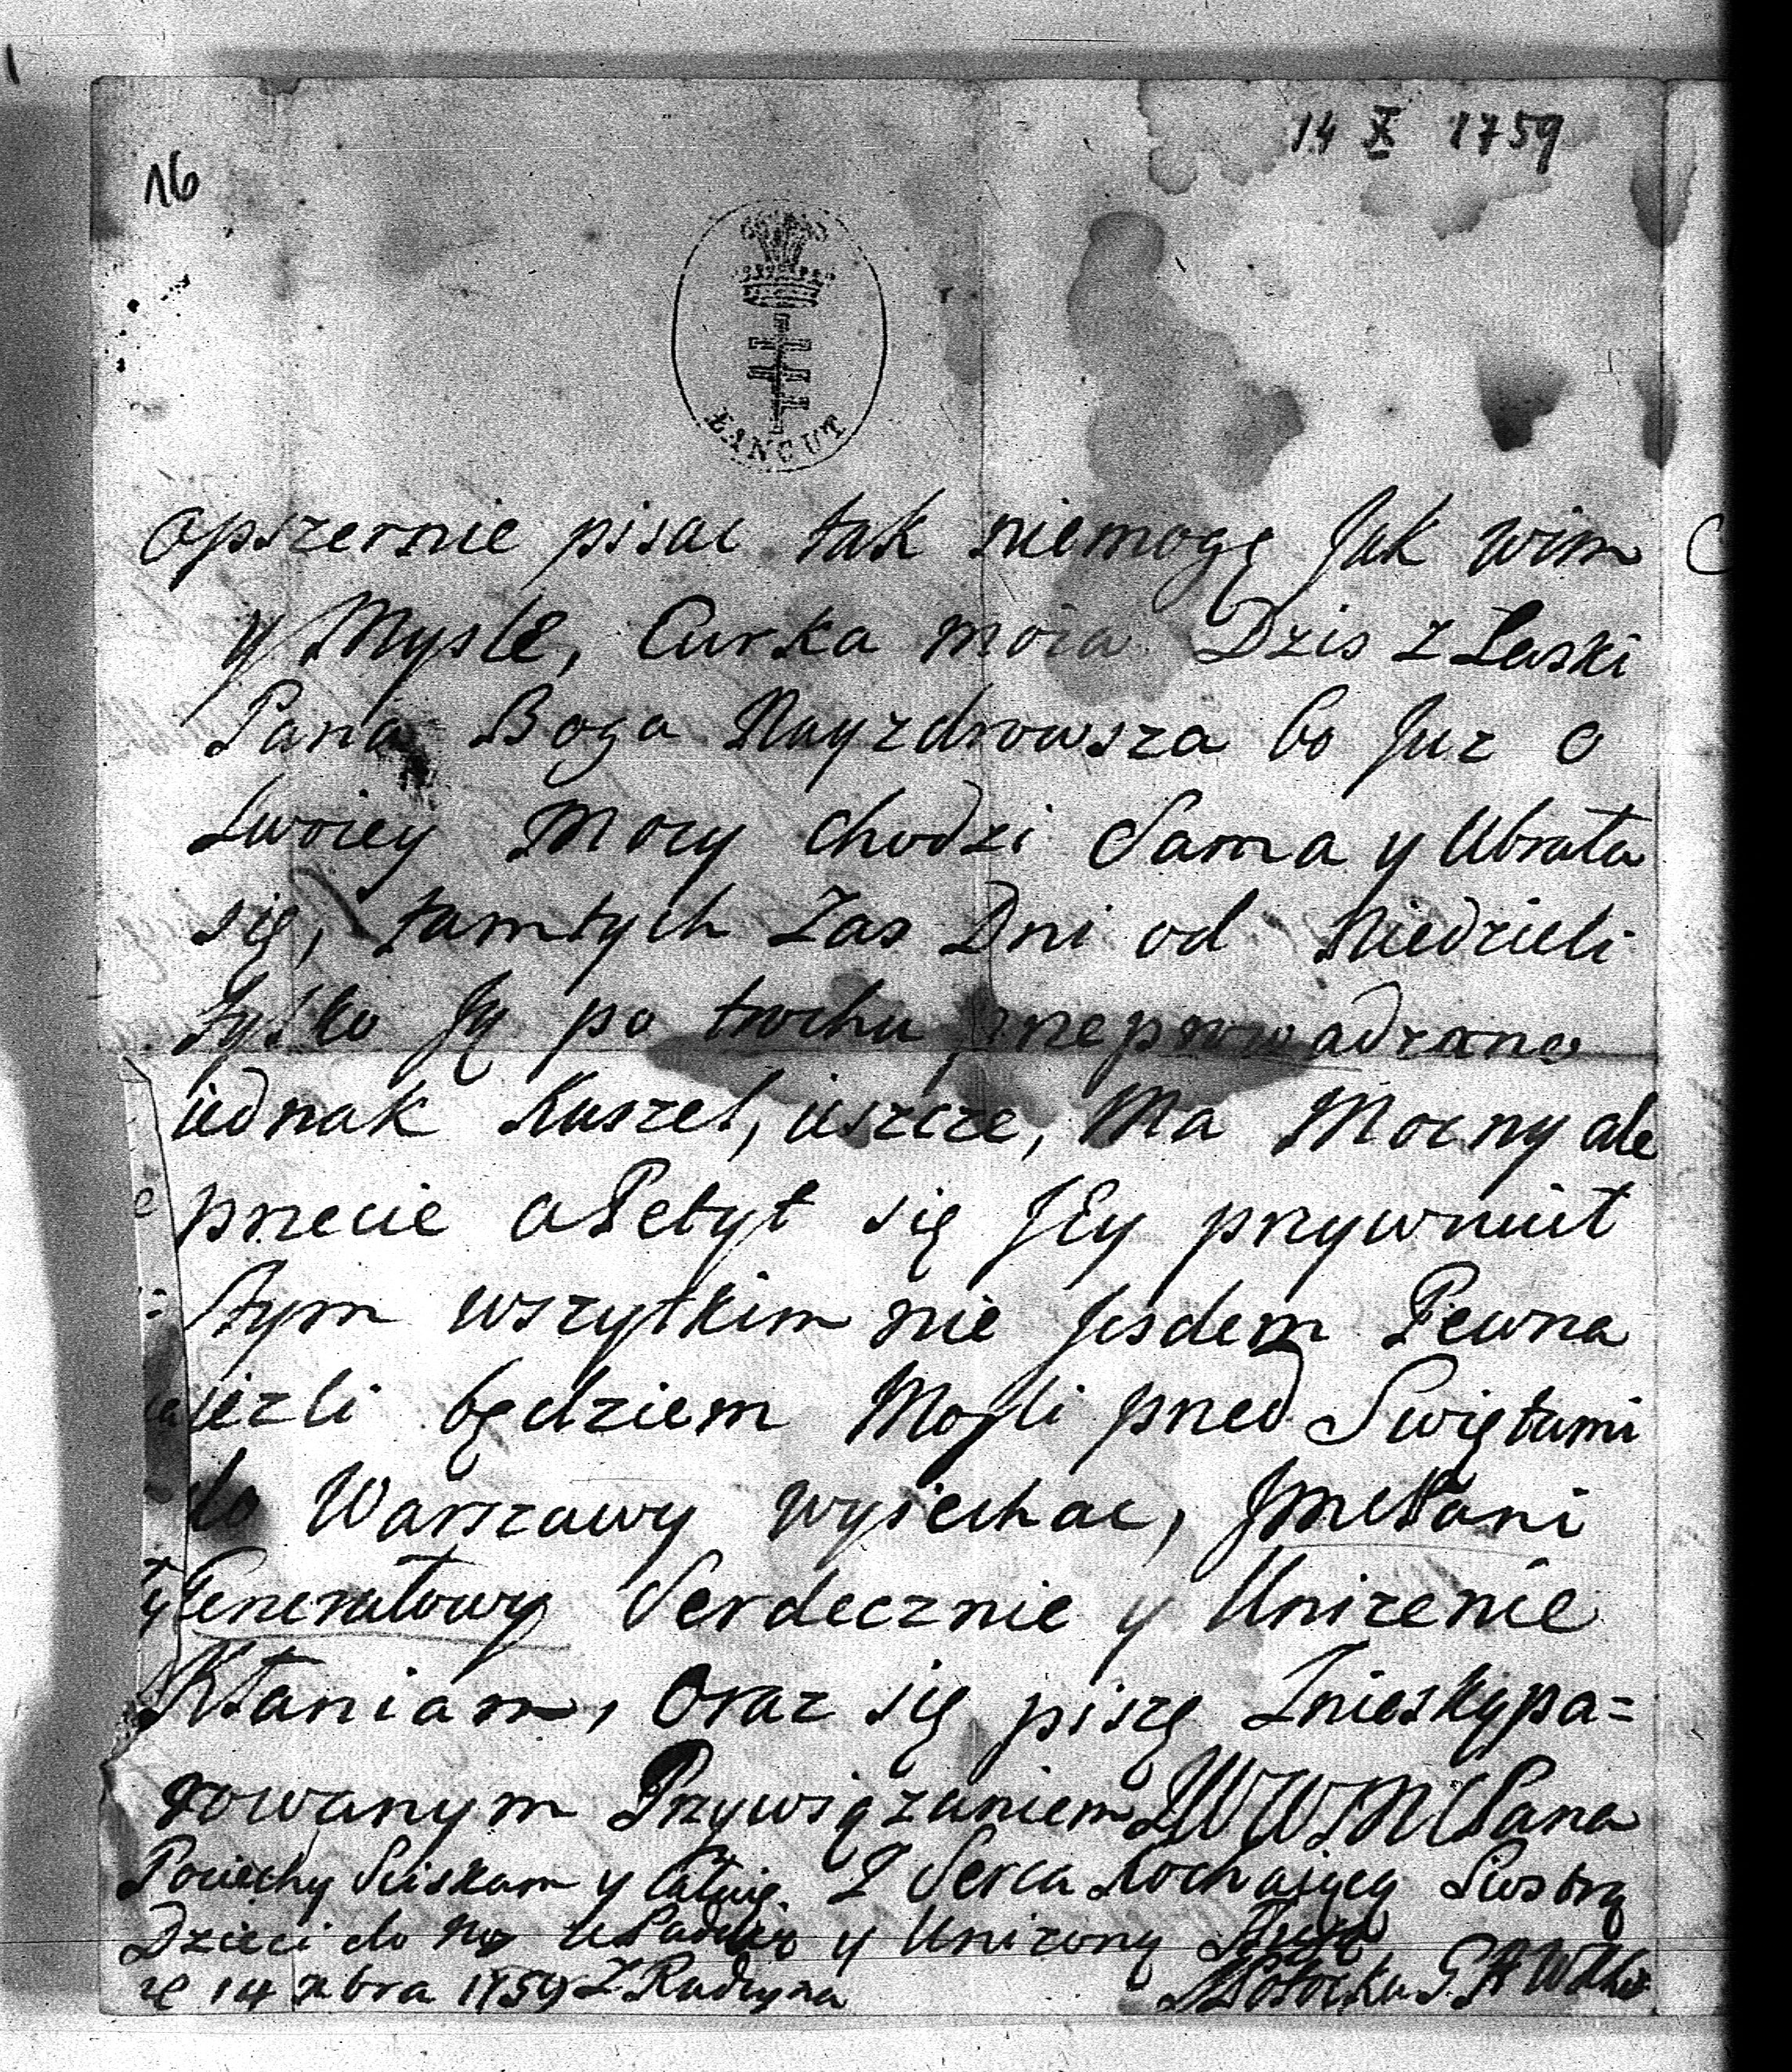 14 X 1759
16
ŁAŃCUT
Opszernie pisac tak niemogę Jak wim
y Mysle, Curka moia Dzis z Łaski
Pana Boga Nayzdrowsza bo Juz o
Swoiey Mocy chodzi Sama y Ubrała
się, tamtych Zas Dni od Niedzieli
tylko Ją po trochu przeprowadzano
iednak Kaszel, ieszcze, Ma Mocny ale
przecie aPetyt się JEy przywrucił
stym wszytkim nie Jesdem Pewna
iezli będziem Mogli przed Swiętami
do Warszawy wyiechac, JmciPani
Generałowy Serdecznie y Unizenie
Kłaniam, Oraz się piszę Znieskypa=
rowanym Przywiązaniem JWWMCPana
Pociechy Sciskam y Całuię. Z Serca Kochaiącą Siostrą
Dzieci do nog uPadaią y Unizoną Sługą
ze 14 xbra 1759 Z Radzyna MPotocka G A W